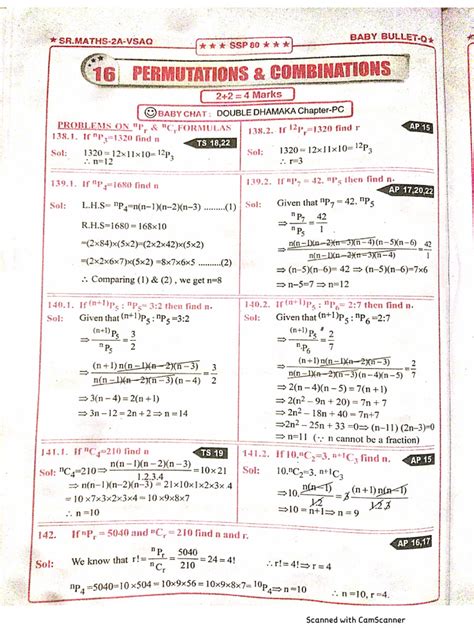 ★ SR.MATHS-2A-VSAQ
★★★ SSP 80 ★★★
BABY BULLET-Q★
16 PERMUTATIONS & COMBINATIONS
2+2 = 4 Marks
BABY CHAT : DOUBLE DHAMAKA Chapter-PC
PROBLEMS ON ⁿPᵣ & ⁿCᵣ FORMULAS
138.1. If ⁿP₃=1320 find n
TS 18,22
Sol: 1320 = 12×11×10= ¹²P₃
∴ n=12
138.2. If ¹²Pᵣ=1320 find r
AP 15
Sol: 1320 =12×11×10= ¹²P₃
∴ r=3
139.1. If ⁿP₄=1680 find n
Sol: L.H.S= ⁿP₄=n(n−1)(n−2)(n−3) .........(1)
R.H.S=1680 = 168×10
=(2×84)×(5×2)=(2×2×42)×(5×2)
=(2×2×6×7)×(5×2) =8×7×6×5 ..........(2)
∴ Comparing (1) & (2) , we get n=8
139.2. If ⁿP₇ = 42. ⁿP₅ then find n.
AP 17,20,22
Sol: Given that ⁿP₇= 42. ⁿP₅
⇒ ⁿP₇/ⁿP₅ = 42/1
⇒ n(n−1)(n−2)(n−3)(n−4)(n−5)(n−6)/n(n−1)(n−2)(n−3)(n−4) = 42/1
⇒ (n−5)(n−6)= 42 ⇒ (n−5)(n−6)=7×6
⇒ n−5=7 ⇒ n=12
140.1. If ⁽ⁿ⁺¹⁾P₅ : ⁿP₅= 3:2 then find n.
Sol: Given that ⁽ⁿ⁺¹⁾P₅ : ⁿP₅ =3:2
⇒ ⁽ⁿ⁺¹⁾P₅/ⁿP₅ = 3/2
⇒ (n+1)n(n−1)(n−2)(n−3)/n(n−1)(n−2)(n−3)(n−4) = 3/2
⇒ 3(n−4) = 2(n+1)
⇒ 3n −12 = 2n + 2 ⇒ n = 14
140.2. If ⁽ⁿ⁺¹⁾P₅ : ⁿP₆= 2:7 then find n.
Sol: Given that ⁽ⁿ⁺¹⁾P₅ : ⁿP₆ =2:7
⇒ ⁽ⁿ⁺¹⁾P₅/ⁿP₆ = 2/7
⇒ (n+1)n(n−1)(n−2)(n−3)/n(n−1)(n−2)(n−3)(n−4)(n−5) = 2/7
⇒ 2(n−4)(n−5) = 7(n+1)
⇒ 2(n²−9n+20) = 7n+7
⇒ 2n²−18n+40 = 7n+7
⇒ 2n²−25n+33 =0⇒ (n−11)(2n−3)=0
⇒ n=11 (∵ n cannot be a fraction)
141.1. If ⁿC₄=210 find n
TS 19
Sol: ⁿC₄=210⇒ n(n−1)(n−2)(n−3)/1.2.3.4 =10×21
⇒ n(n−1)(n−2)(n−3)= 21×10×1×2×3×4
= 10×7×3×2×3×4 = 10×9×8×7
∴ n =10
141.2. If 10.ⁿC₂=3. ⁿ⁺¹C₃ find n.
AP 15
Sol: 10.ⁿC₂=3. ⁿ⁺¹C₃
⇒10. n(n−1)/1.2 = 3 (n+1)n(n−1)/1.2.3
⇒10= n+1⇒ n = 9
142. If ⁿPᵣ = 5040 and ⁿCᵣ = 210 find n and r.
AP 16,17
Sol: We know that r!= ⁿPᵣ/ⁿCᵣ = 5040/210 =24= 4! ∴ r!= 4!⇒ r = 4
ⁿP₄ =5040=10×504 = 10×9×56 = 10×9×8×7= ¹⁰P₄⇒ n =10 ∴ n =10, r =4.
Scanned with CamScanner